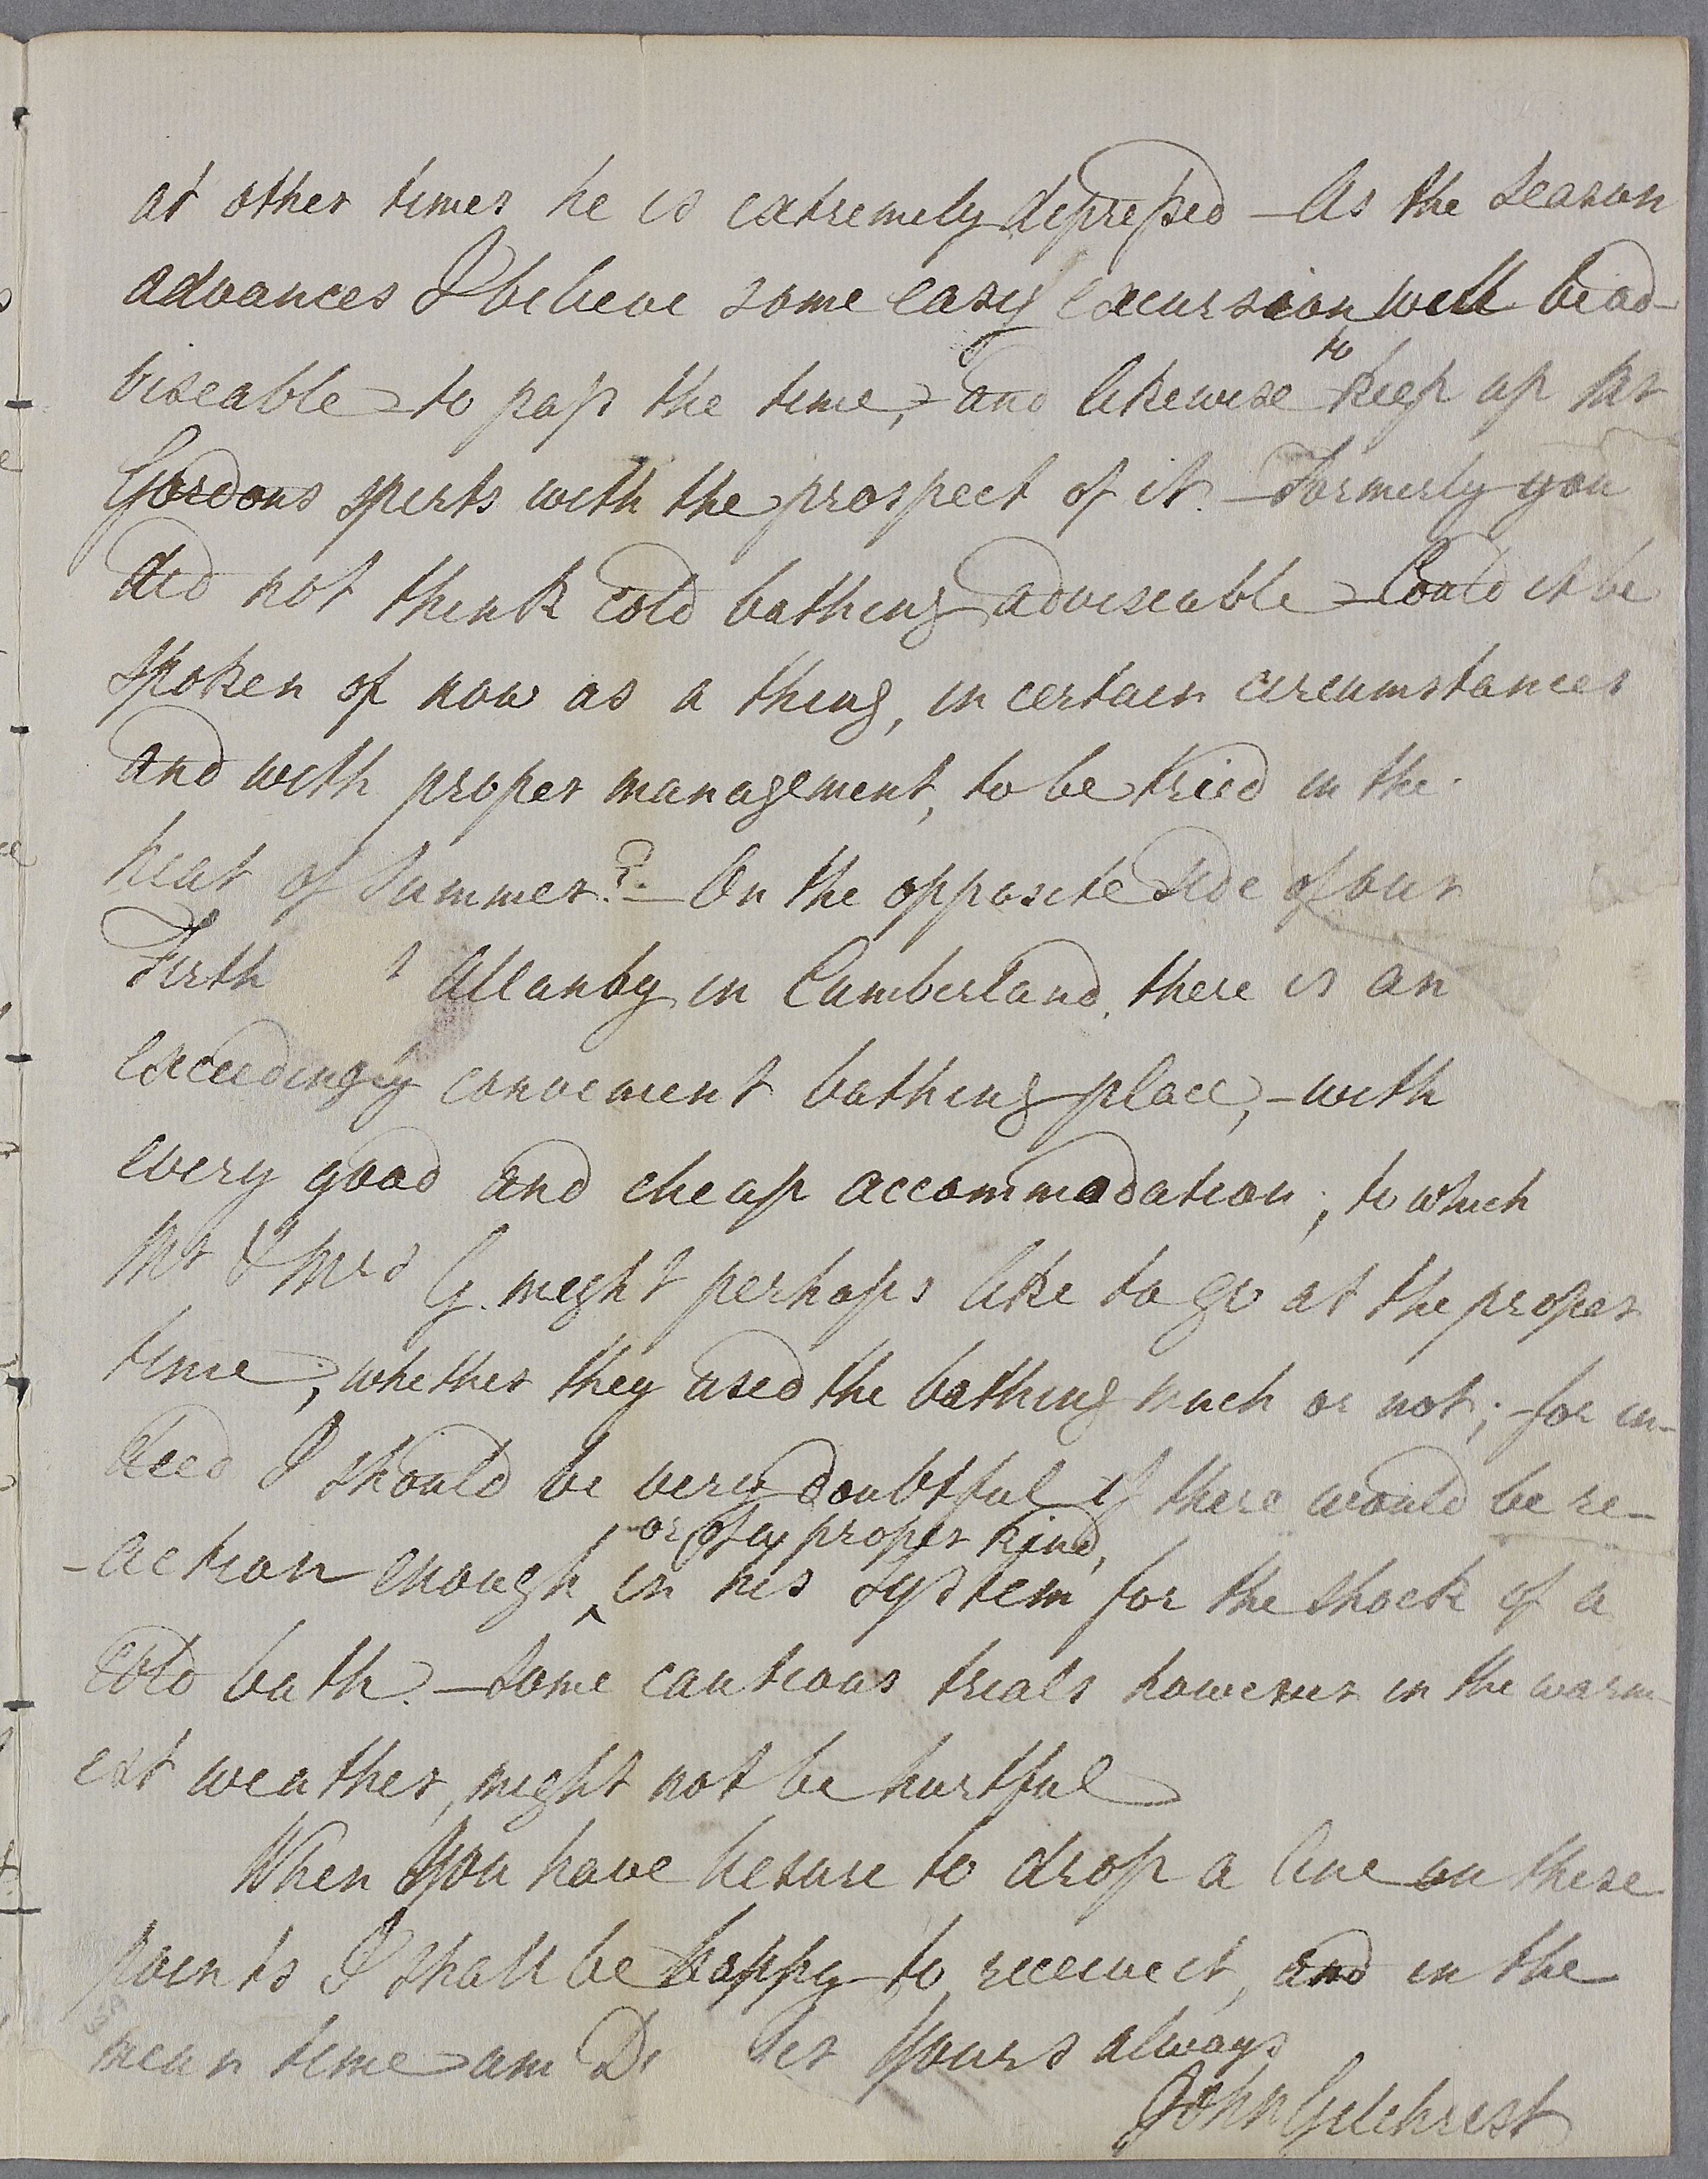 at other times he is extremely depressed – As the season
advances I believe some easy excursion will be ad-
viseable to pass the time, and likewise to keep up Mr
Gordons spirts with the prospect of it. – Formerly you
did not think cold bathing adviseable – Could it be
spoken of now as a thing, in certain circumstances
and with proper management, to be tried in the
heat of Summer? – On the opposite side of our
Firth Allanby in Cumberland, there is an
exceedingly convenient bathing place, – with
every good and cheap accommodation; to which
Mr & Mrs G. might perhaps like to go at the proper
time, whether they used the bathing much or not; – for in-
deed I should be very doubtful if there would be re-
-action enough or of a proper kind, in his system for the shock of a
cold bath. – Some cautious trials however in the warm-
est weather, might not be hurtful
When you have leisure to drop a line on these
points I shall be happy to receive it, and in the
mean time am Dr Yours always
John Gilchrist